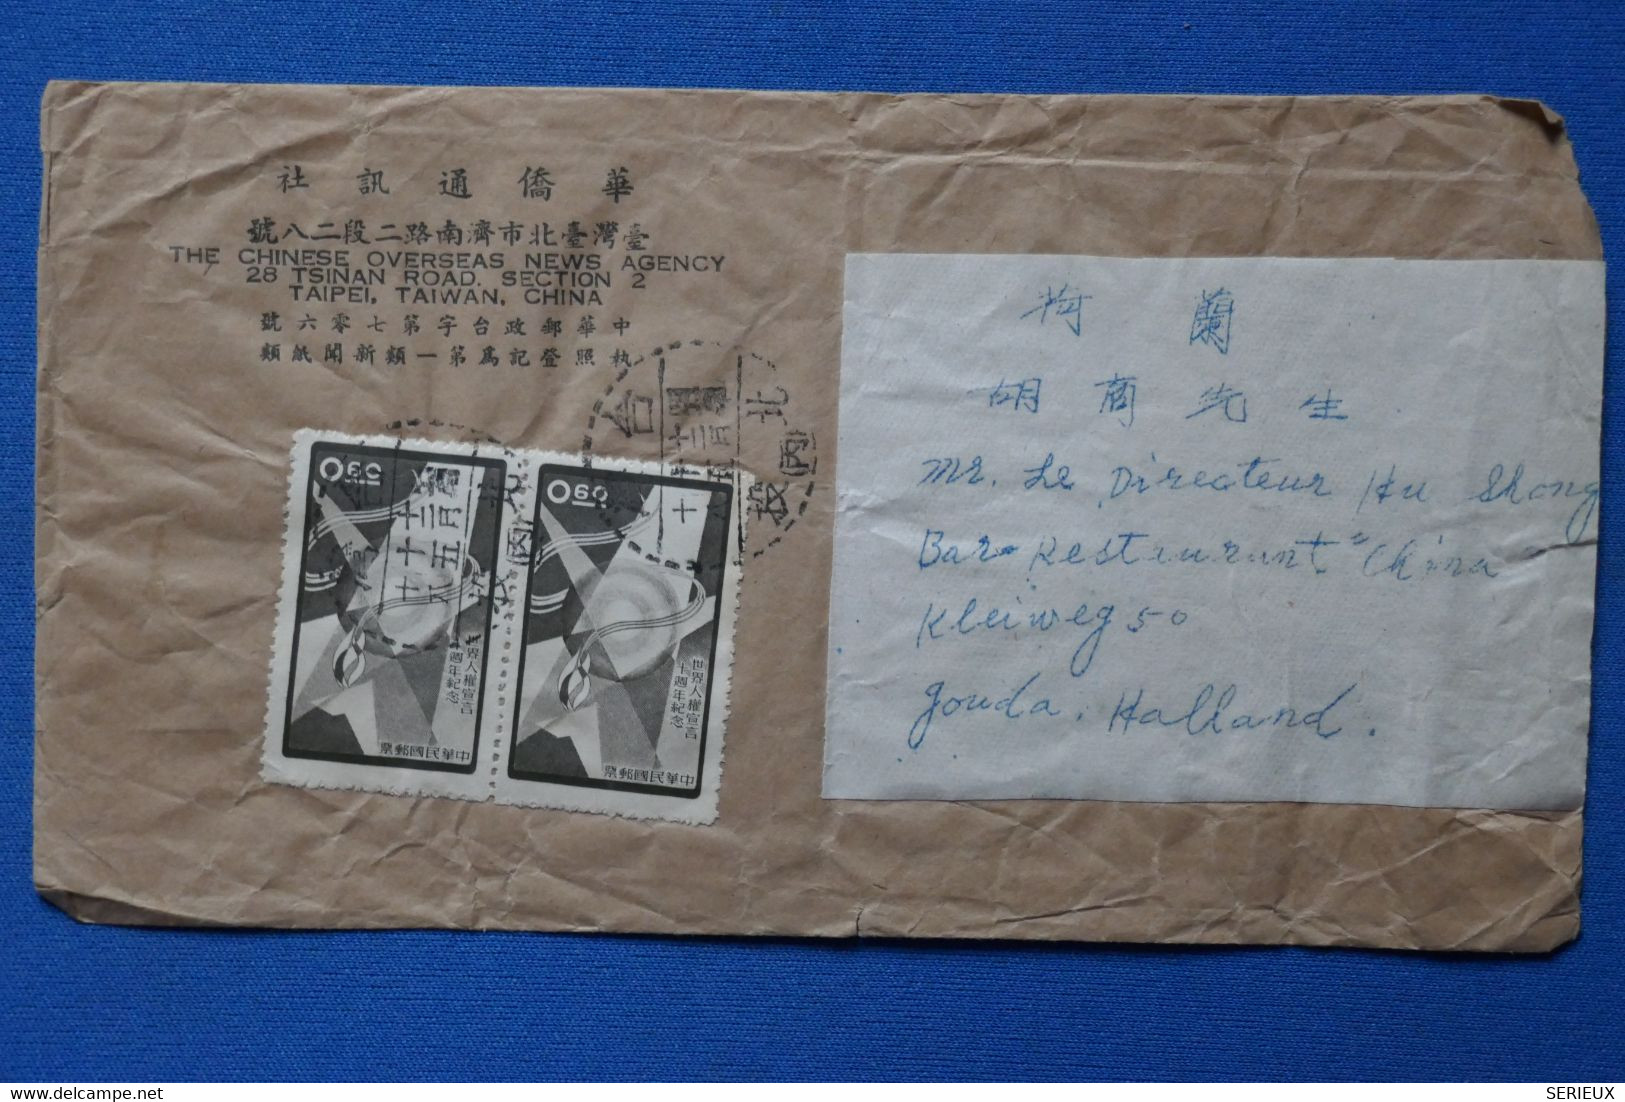 華僑通訊社
臺灣臺北市濟南路二段二八號
THE CHINESE OVERSEAS NEWS AGENCY
28 TSINAN ROAD. SECTION 2
TAIPEI, TAIWAN, CHINA
中華郵政台字第七零六號
執照登記爲第一類新聞紙類
0.60
世界人權宣言
十週年紀念
中華民國郵票
0.60
世界人權宣言
十週年紀念
中華民國郵票
荷蘭
胡商先生
Mr. Le Directeur Hu Shong
Bar-Restaurant "China
Kleiweg 50
Gouda. Halland.
SERIEUX